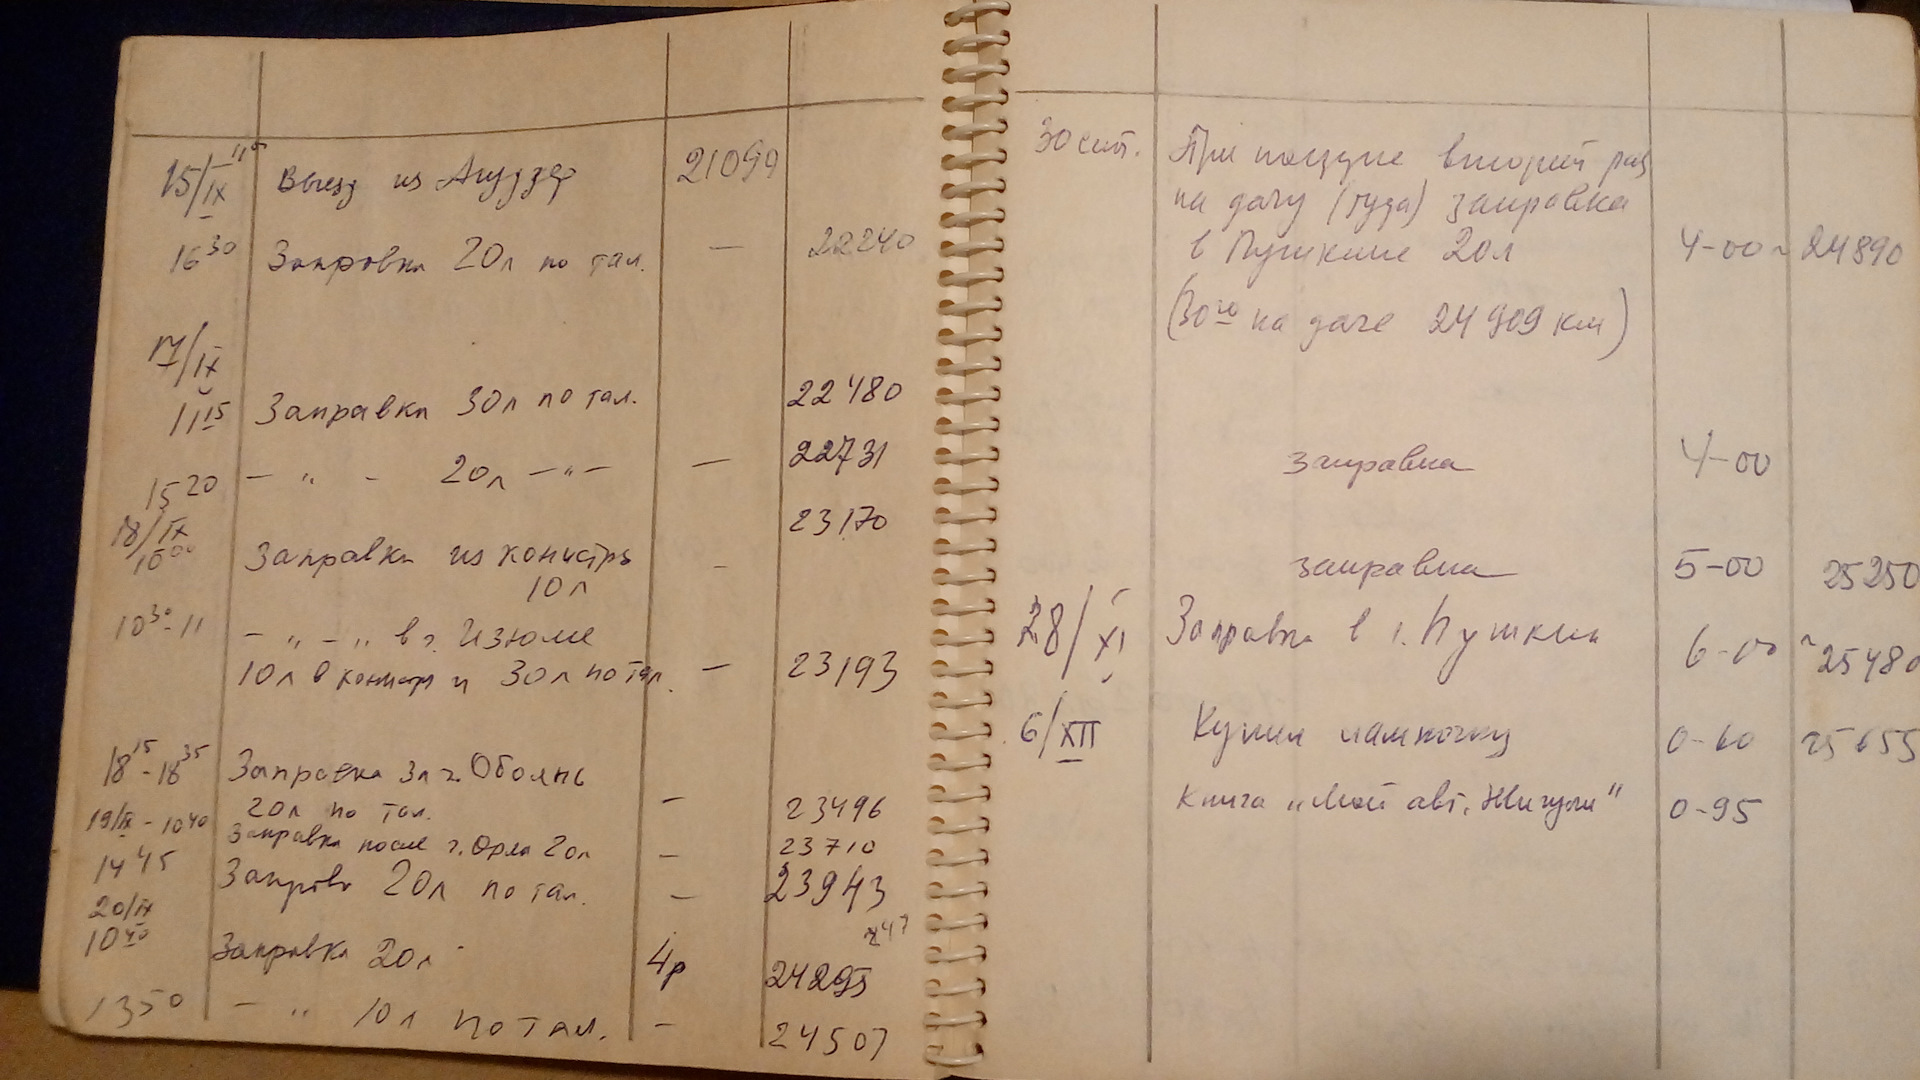 15/IX Выезд из Агудзер 21099
16 30 Заправка 20л по тал. — 22240
17/IX
11 15 Заправка 30л по тал. 22480
15 20 — „ - 20л —„— — 22731
18/IX 23170
10 00 Заправка из канистры -
10л
10 30-11 — „ — „ в г. Изюме
10л в канистр и 30л по тал. — 23193
18 15 - 18 35 Заправка Зл г. Обоянь
20л по тал. — 23496
19/IX - 10 40 Заправка после г. Орла 20л — 23710
14 45 Заправ 20л по тал. — 23943
20/IX
10 40 Заправка 20л 4р
13 50 — „ 10л по тал. — 24507
30 сент. При поездке второй раз
на дачу (туда) заправка
в Пушкине 20л 4-00 ~ 24890
(30го на даче 24909 км)
заправка 4-00
заправка 5-00 25250
28/XI Заправка в г. Пушкин 6-00 ~25480
6/XII Купил лампочку 0-60 25655
Книга „Мой авт. Жигули" 0-95